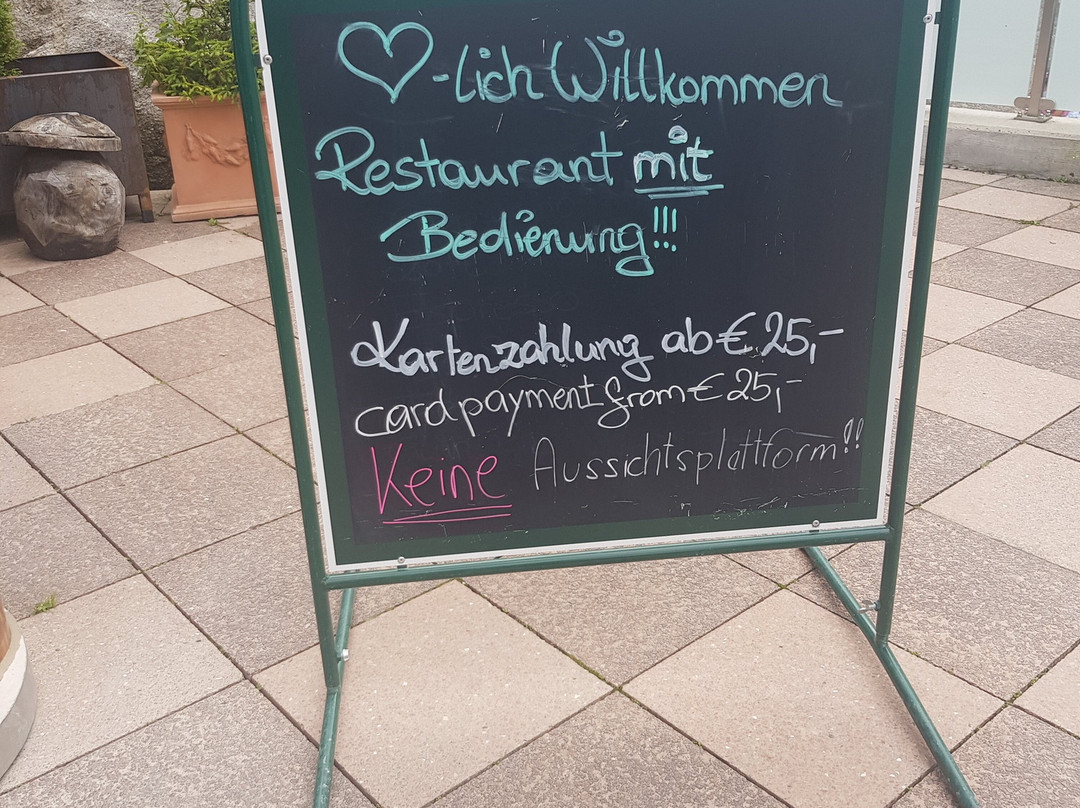 ♡-lich Willkommen
Restaurant mit
Bedienung!!!
Kartenzahlung ab € 25,-
cardpayment from € 25,-
Keine Aussichtsplattform!!